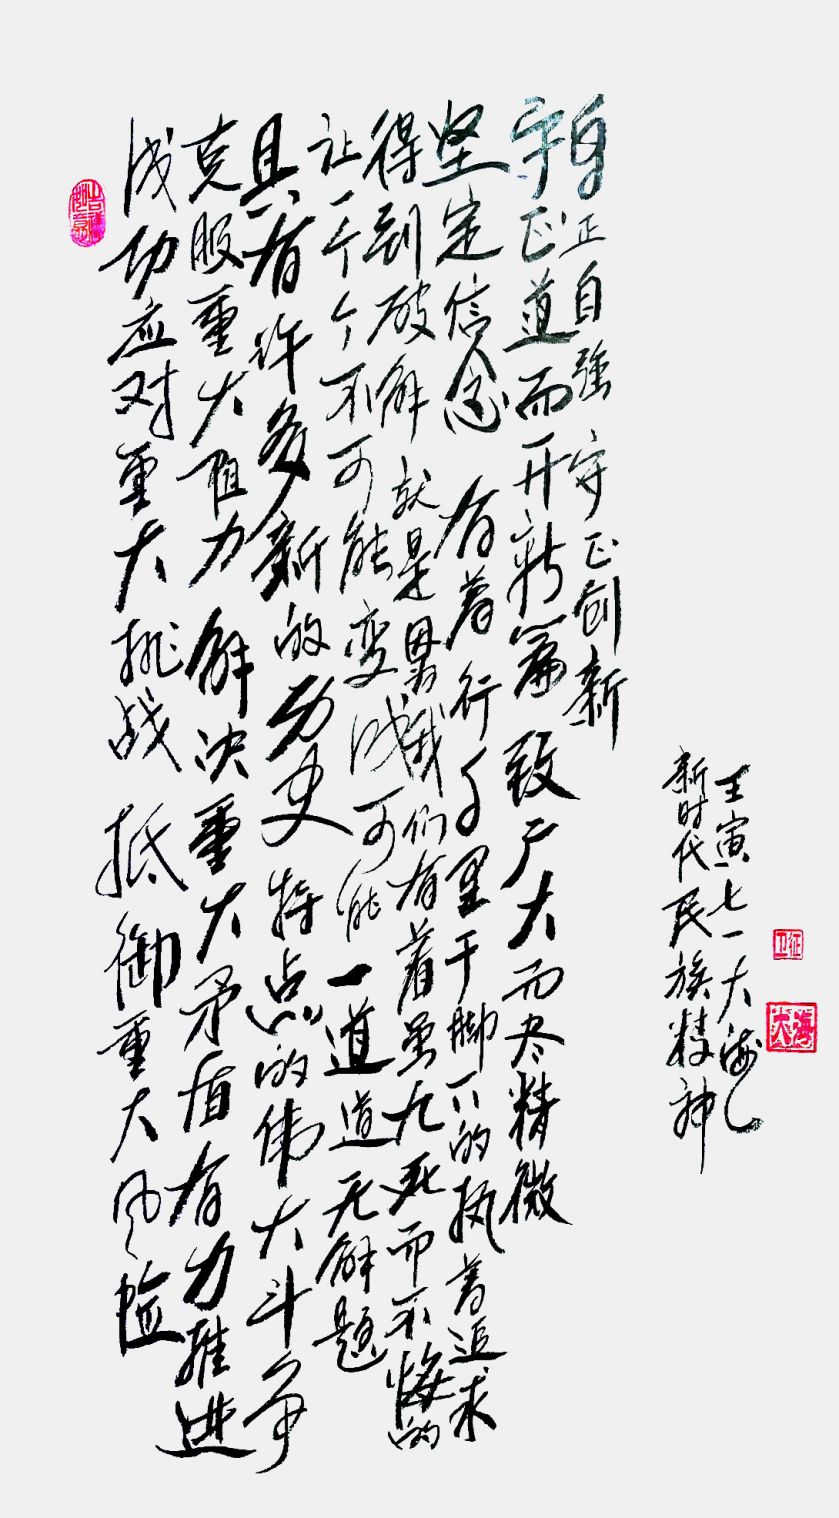 吉祥如意
成功应对重大挑战 抵御重大风险
克服重大阻力 解决重大矛盾 有力推进
具有许多新的历史特点的伟大斗争
让一个个不可能变成可能 一道道无解题
得到破解 就是因为我们有着虽九死而不悔的
坚定信念 有着行千里于脚下的执着追求
守正道而开新篇 致广大而尽精微
身正自強 守正创新
新时代民族精神
壬寅七一大海
卫征
大海